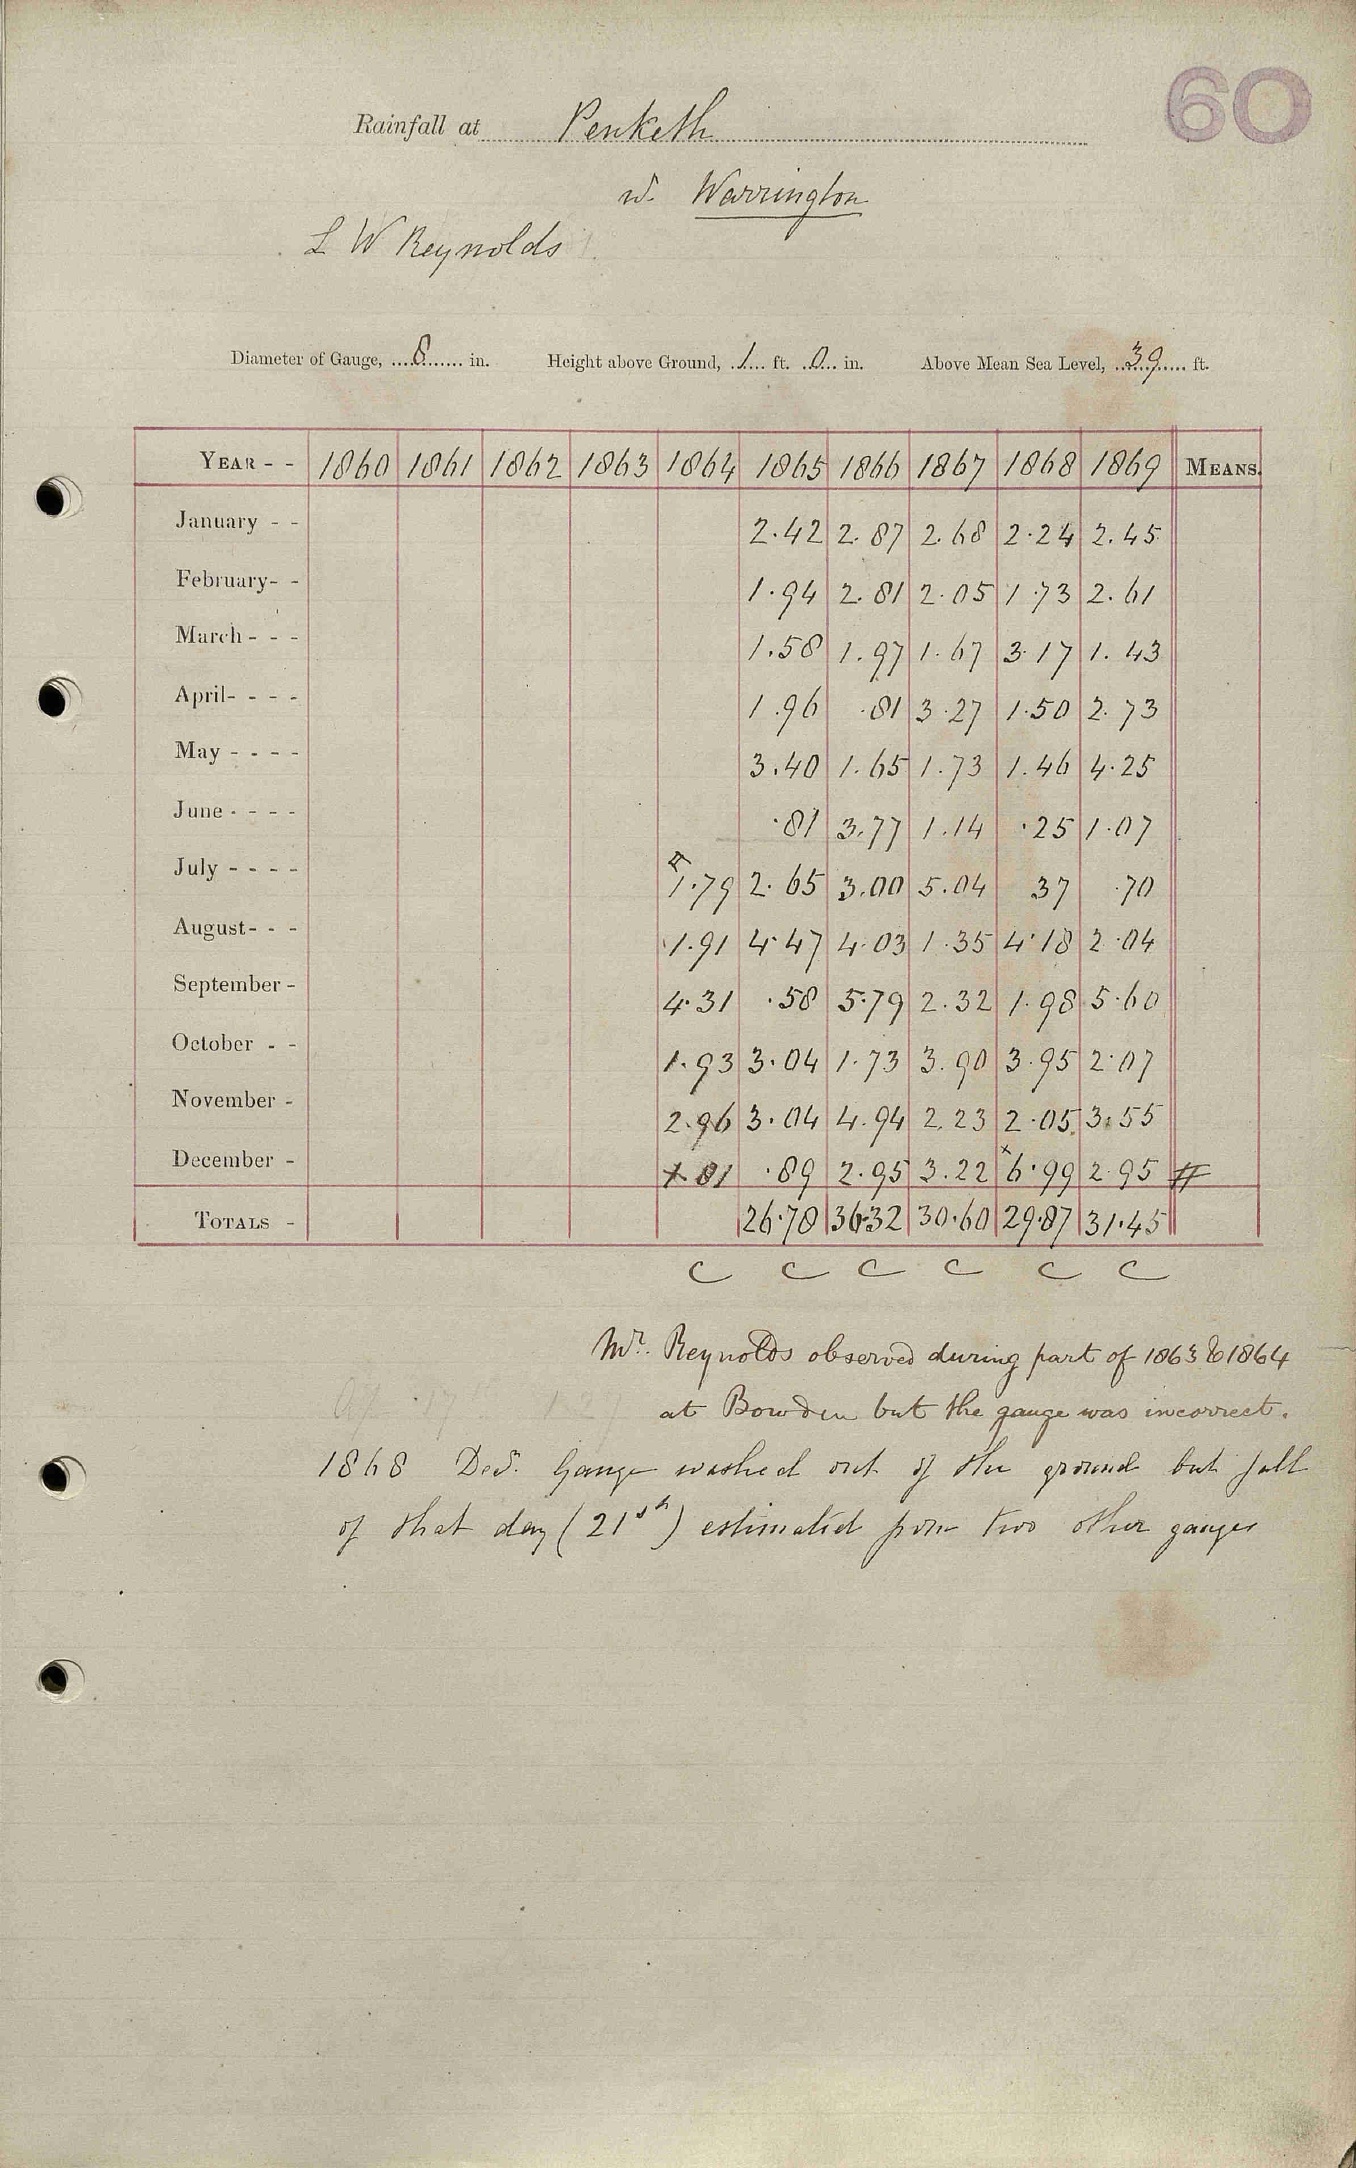 60
Rainfall at Penketh
nr. Warrington
L W Reynolds
Diameter of Gauge, 8 in. Height above Ground, 1 ft. 0 in. Above Mean Sea Level, 39 ft.
YEAR - - 1860 1861 1862 1863 1864 1865 1866 1867 1868 1869 MEANS.
January - - 2.42 2.87 2.68 2.24 2.45
February- - 1.94 2.81 2.05 1.73 2.61
March - - - 1.58 1.97 1.67 3.17 1.43
April- - - - 1.96 .81 3.27 1.50 2.73
May - - - - 3.40 1.65 1.73 1.46 4.25
June - - - - .81 3.77 1.14 .25 1.07
July - - - - 1.79 2.65 3.00 5.04 37 .70
August- - - 1.91 4.47 4.03 1.35 4.18 2.04
September - 4.31 .58 5.79 2.32 1.98 5.60
October - - 1.93 3.04 1.73 3.90 3.95 2.07
November - 2.96 3.04 4.94 2.23 2.05 3.55
December - 1.81 .89 2.95 3.22 x6.99 2.95 #
TOTALS - 26.78 36.32 30.60 29.87 31.45
C C C C C C
Mr. Reynolds observed during part of 1863 & 1864
at Bowden but the gauge was incorrect.
1868 Decr. Gauge washed out of the ground but fall
of that day (21st) estimated from two other gauges